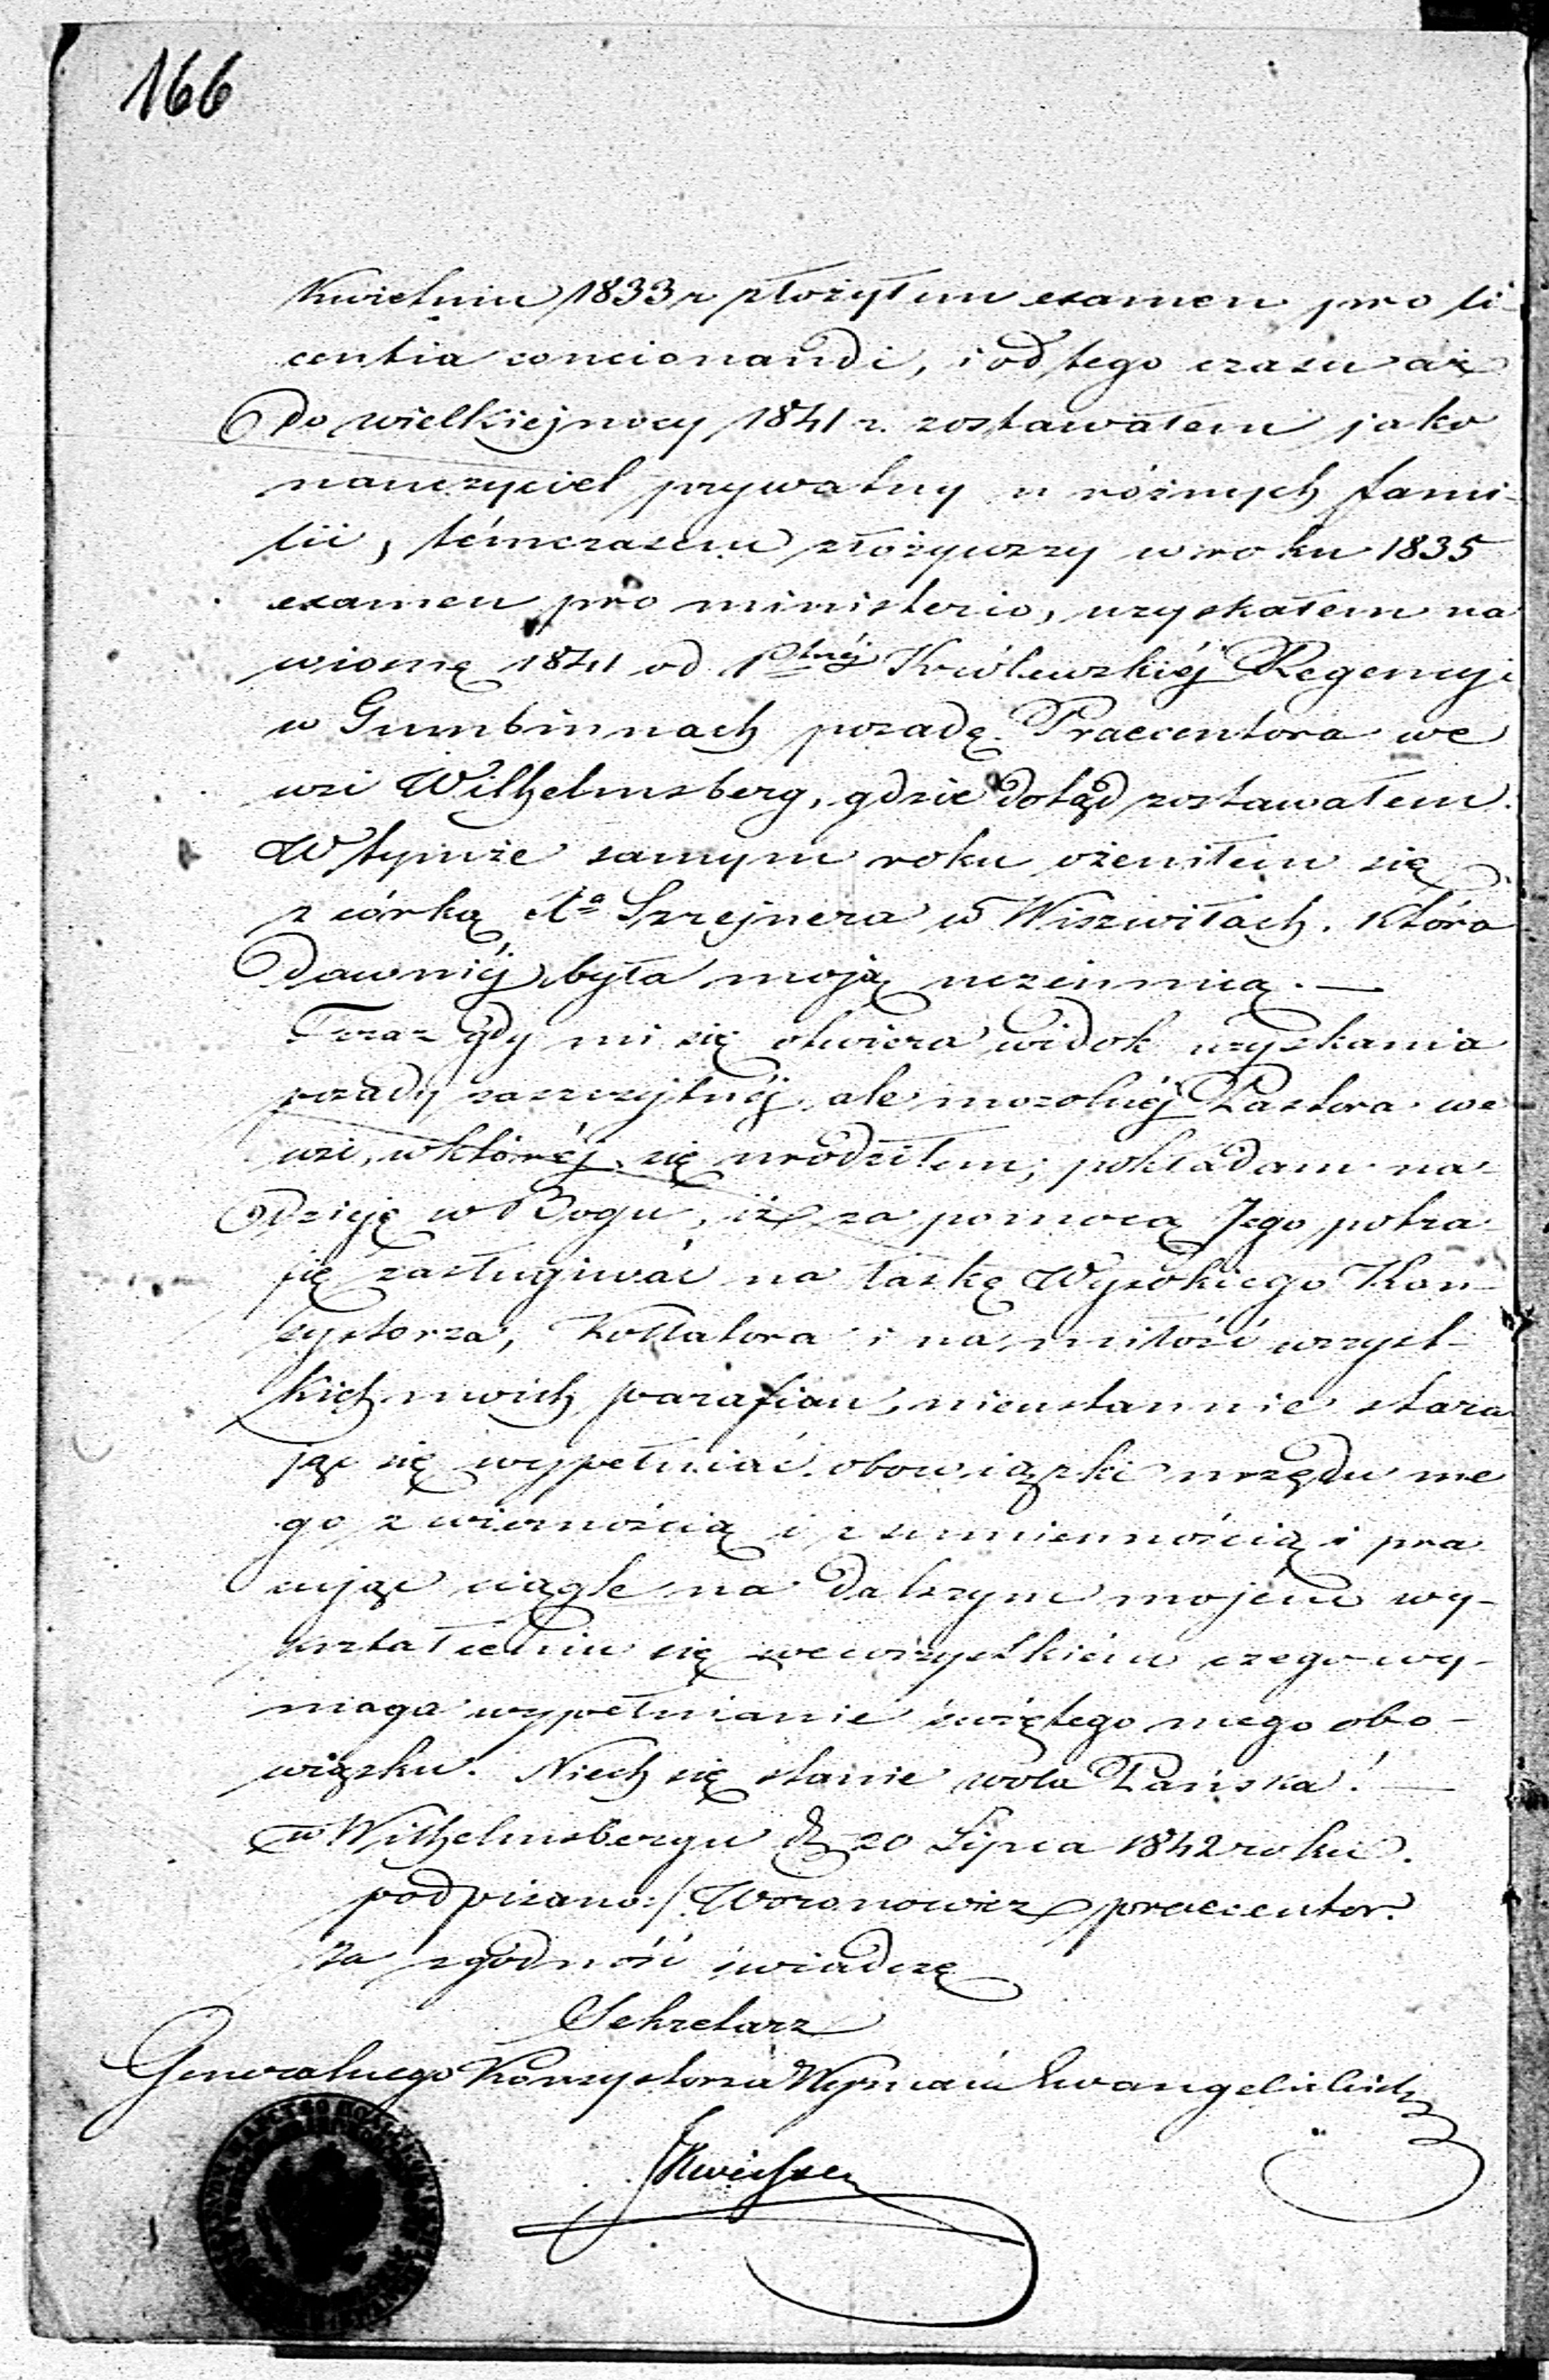 166
Kwietniu 1833 r złożyłem examen pro li-
centia concionandi, i od tego czasu aż
do wielkiejnocy 1841 r. zostawałem jako
nauczyciel prywatny u różnych fami-
lii, témczasem złożywszy w roku 1835
examen pro ministerio, uzyskałem na
wiosnę 1841 od Królewskiéj Regencyi
w Gumbinnach posadę Praecentora we
wsi Wilhelmsberg, gdzie dotąd zostawałem.
W tymże samym roku ożeniłem się
z córką Szrejnera w Wiszwiłach, która
dawniéj była moją uczennicą. —
Teraz gdy mi się otwiera widok uzyskania
posady zaszczytnéj, ale mozolnéj Pastora we
wsi, w któréj się urodziłem; pokładam na-
dzieję w Bogu, iż za pomocą Jego potra-
fię zasługiwać na łaskę Wysokiego Kon-
systorza, Kollatora i na miłość wszyst-
kich moich parafian, nieustannie stara
jąc się wypełniać obowiązki urzędu me
go z wiernością i z sumiennością i pra
cując ciągle na dalszym mojém wy-
kształceniu się we wszystkiém czego wy-
maga wypełnianie świętego mego obo-
wiązku. Niech się stanie wola Pańska! —
w Wilhelmsbergu d. 20 Lipca 1842 roku.
podpisano:/ Woronowicz praecentor.
Za zgodność świadczę
Sekretarz
Generalnego Konsystorza Wyznań Ewangelickich